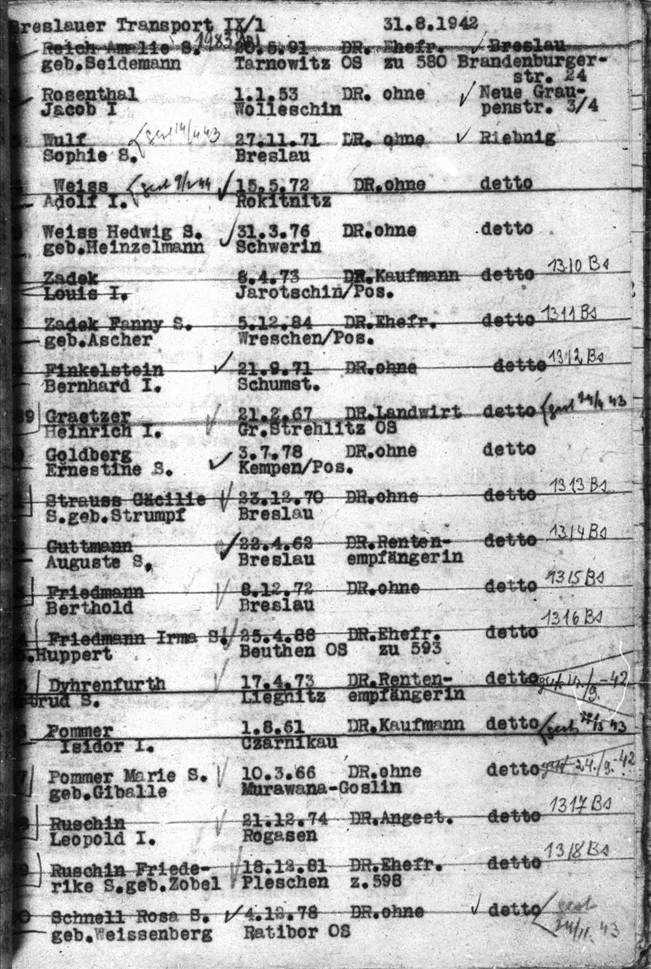 Breslauer Transport IX/1 31.8.1942
Reich Amalie S. 20.5.91 DR.Ehefr. Breslau
geb.Seidemann Tarnowitz OS zu 580 Brandenburger-
str. 24
Rosenthal 1.1.53 DR. ohne Neue Grau-
Jacob I Wolleschin penstr. 3/4
Wulf 27.11.71 DR. ohne Riebnig
Sophie S. Breslau
Weiss 15.5.72 DR.ohne detto
Adolf I. Rokitnitz
Weiss Hedwig S. 31.3.76 DR.ohne detto
geb.Heinzelmann Schwerin
Zadek 8.4.73 DR.Kaufmann detto 1310 Bs
Louis I. Jarotschin/Pos.
Zadek Fanny S. 5.12.84 DR.Ehefr. detto 1311 Bs
geb.Ascher Wreschen/Pos.
Finkelstein 21.9.71 DR.ohne detto 1312 Bs
Bernhard I. Schumst.
Graetzer 21.2.67 DR.Landwirt detto
Heinrich I. Gr.Strehlitz OS
Goldberg 3.7.78 DR.ohne detto
Ernestine S. Kempen/Pos.
Strauss Cäcilie 23.12.70 DR.ohne detto 1313 Bs
S.geb.Strumpf Breslau
Guttmann 22.4.62 DR.Renten- detto 1314 Bs
Auguste S. Breslau empfängerin
Friedmann 8.12.72 DR.ohne detto 1315 Bs
Berthold Breslau
Friedmann Irma S. 25.4.88 DR.Ehefr. detto 1316 Bs
.Huppert Beuthen OS zu 593
Dyhrenfurth 17.4.73 DR.Renten- detto
trud S. Liegnitz empfängerin
Pommer 1.8.61 DR.Kaufmann detto
Isidor I. Czarnikau
Pommer Marie S. 10.3.66 DR.ohne detto gest 24./9. 42
geb.Giballe Murawana-Goslin
Ruschin 21.12.74 DR.Angest. detto 1317 Bs
Leopold I. Rogasen
Ruschin Friede- 18.12.81 DR.Ehefr. detto 1318 Bs
rike S.geb.Zobel Pleschen z.598
Schnell Rosa S. 4.12.78 DR.ohne detto gest
geb.Weissenberg Ratibor OS